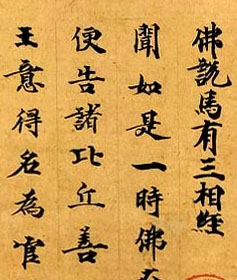 佛說馬有三相經
聞如是一時佛在
便告諸比丘善
王意得名為官